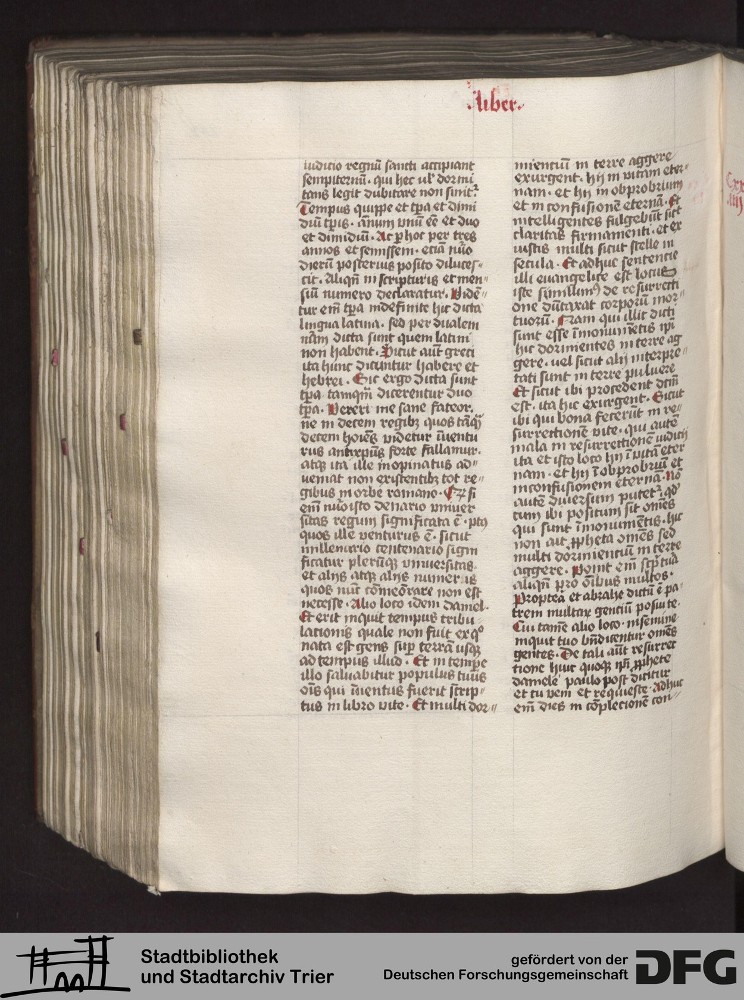 Liber
iudicio regnū sancti accipiant
sempiternū. qui hec ul' dormi
tans legit dubitare non sinit᷑
Tempus quippe et tp̄a et dimi
diū tp̄is. anum vnū eē et duo
et dimidiū. Ac p̱hoc per tres
annos et semissem. etiā nūo
dierū posterius posito diluces-
cit. Aliqn̄ in scripturis et men-
siū numero declaratur. Vidē-
tur em̄ tp̄a indefinite hic dicta
lingua latina. sed per dualem
nūm dicta sunt quem latini
non habent. Sicut aūt greci
ita hunc dicuntur habere et
hebrei. Sic ergo dicta sunt
tp̄a. tamqm̄ dicerentur duo
tp̄a. Vereri me sane fateor.
ne in decem regibꝫ quos tāqꝫ
decem hoīes videtur īuentu
rus antixp̄us forte fallamur.
atqꝫ ita ille inopinatus ad-
veniat non existentibꝫ tot re-
gibus in orbe romano. Qꝫ si
em̄ nūo isto denario vniuer
sitas regum significata ē. p̱t
quos ille venturus ē. sicut
millenario centenario signi
ficatur plerūqꝫ vniuersitas.
et alijs atqꝫ alijs numeris
quos nūc cōmeōrare non est
necesse. Alio loco idem daniel.
Et erit inquit tempus tribu
lationis quale non fuit ex qͦ
nata est gens sup terrā usqꝫ
ad tempus illud. Et in tempe
illo saluabitur populus tuus
oīs qui īuentus fuerit scrip-
tus in libro vite. Et multi dor-
mientiū in terre aggere
exurgent. hij in vitam eter-
nam. et hij in obprobrium
et in confusionē eternā. Et
intelligentes fulgebūt sic̄
claritas firmamenti. et ex
iustis multi sicut stelle in
secula. Et adhuc sentencie
illi euangelice est locus
iste simillimꝰ de resurrecti
one dūtaxat corporū mor-
tuorū. Nam qui illic dicti
sunt esse ī monumētis ip̄i
hic dormientes in terre ag
gere. uel sicut alij interpre-
tati sunt in terre puluere
Et sicut ibi procedent dc̄m
est. ita hic exurgent. Sicut
ibi qui bona fecerūt in re-
surrectionē vite. qui autē
mala in resurrectionē iudicij
ita et isto loco hij ī vitā eter
nam. et hij ī obprobriū et
in confusionem eternā. Nō
autē diuersum putet᷑. qꝫ
cum ibi positum sit omēs
qui sunt ī monumētis. hic
non ait ꝓpheta omēs sed
multi dormientiū in terre
aggere. ponit em̄ scpͥtura
aliqn̄ pro oībus multos.
Propterea et abrahe dictū ē pa-
trem multar̄ gentiū posui te.
Cui tamē alio loco. in semine
inquit tuo bn̄dicentur omēs
gentes. De tali aūt resurrec
tione huic quoqꝫ ip̄i ꝓphete
danieli paulo post dicitur
et tu veni et requiesce. Adhuc
em̄ dies in cōplecionē con-
Stadtbibliothek
und Stadtarchiv Trier
gefördert von der
Deutschen Forschungsgemeinschaft
DFG